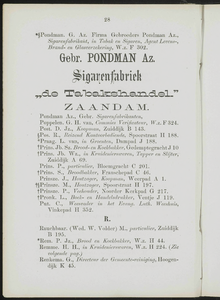 28
*§Pondman. G. Az. Firma Gebroeders Pondman Az.,
Sigarenfabrikant, in Tabak en Sigaren, Agent Levens-,
Brand- en Glasverzekering, W.z. F 202.
Gebr. PONDMAN Az.
Sigarenfabriek
„de Tabakshandel"
ZAANDAM.
Pondman Az., Gebr. Sigarenfabrikanten.
Poppelen, G. H. van, Commies Verificateur, W.z. F 524.
Post, D. Jz., Koopman, Zuiddijk B 143.
Pos, H., Reizend Kantoorbediende, Spoorstraat H 188.
*Praag, L. van, in Granaten, Dampad J 188.
Prins, Jb. Sz., Brood- en Koekbakker, Gedempte
Prins, Jb. Wz., in
Zuiddijk A 69.
Prins, P., particulier, Bloemgracht C 201.
†Prins, S., Broodbakker, Franschepad C 46.
Prinsze, J., Houtzager, Koopman, Weerpad A 1.
Prinsze, M., Houtzager, Spoorstraat H 197.
*Prinsze, P., Veehouder, Noorder Kerkpad G 217.
†Pronk, L., Beeste- en Huishilderbaker, Ventje J 119.
Put, C., Wesenaller in het Evang. Luth. Weeshuis,
Vinkepad H 352.
R.
Ranchbaar, (Wed. W. Volder) M., particulier, Zuiddijk
B 195.
*Rem, P. Jz., Brood- en Koekbakker, W.z. H 44.
Remmo, H. H., Instrumentenmaker, W.z. H 224. (Zie
volgende pag.)
Reekema, G., Directeur der Gemeentereiniging, Hoogendijk
K 45.